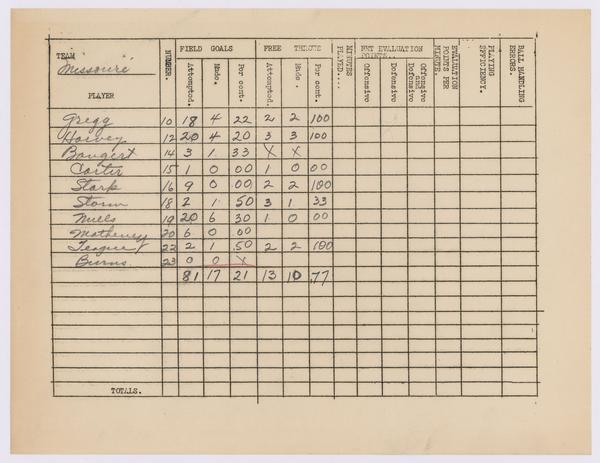 TEAM Missouri
PLAYER NUMBER. FIELD GOALS FREE THROWS MINUTES PLAYED.... NET EVALUATION POINTS... EVALUATION POINTS PER MINUTE. PLAYING EFFICIENCY. BALL HANDLING ERRORS.
Attempted. Made. Per cent. Attempted. Made. Per cent. Offensive Defensive Offensive and Defensive
Gregg 10 18 4 22 2 2 100
Harvey 12 20 4 20 3 3 100
Bangert 14 3 1 33 X X
Carter 15 1 0 00 1 0 00
Stark 16 9 0 00 2 2 100
Storm 18 2 1 50 3 1 33
Mills 19 20 6 30 1 0 00
Matheny 20 6 0 00
Teague 22 2 1 50 2 2 100
Burns 23 0 0 X
81 17 21 13 10 77
TOTALS.